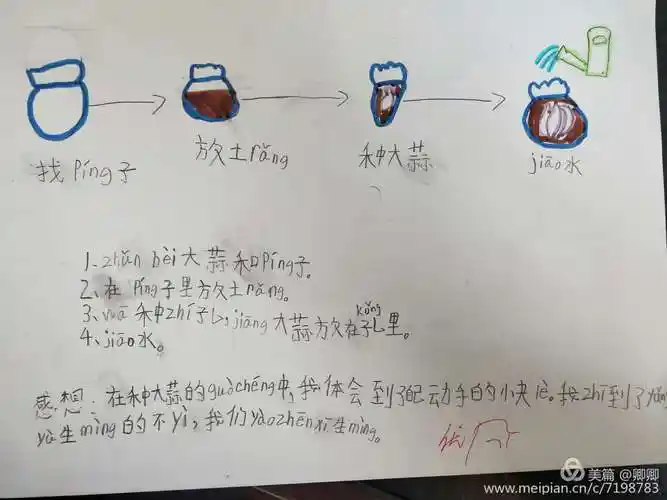 找píng子
放土rǎng
种大蒜
jiāo水
1、zhǔn bèi大蒜和píng子。
2、在píng子里放土rǎng。
kǒng
3、wā种zhí子乚,jiāng大蒜放在孔里。
4、jiāo水。
感想:在种大蒜的guòchéng中,我体会到了自己动手的小快lè。我zhī到了yǎng
yù生mìng的不yì,我们yào zhēn xī生mìng。
优
美篇 @卿卿
www.meipian.cn/c/7198783